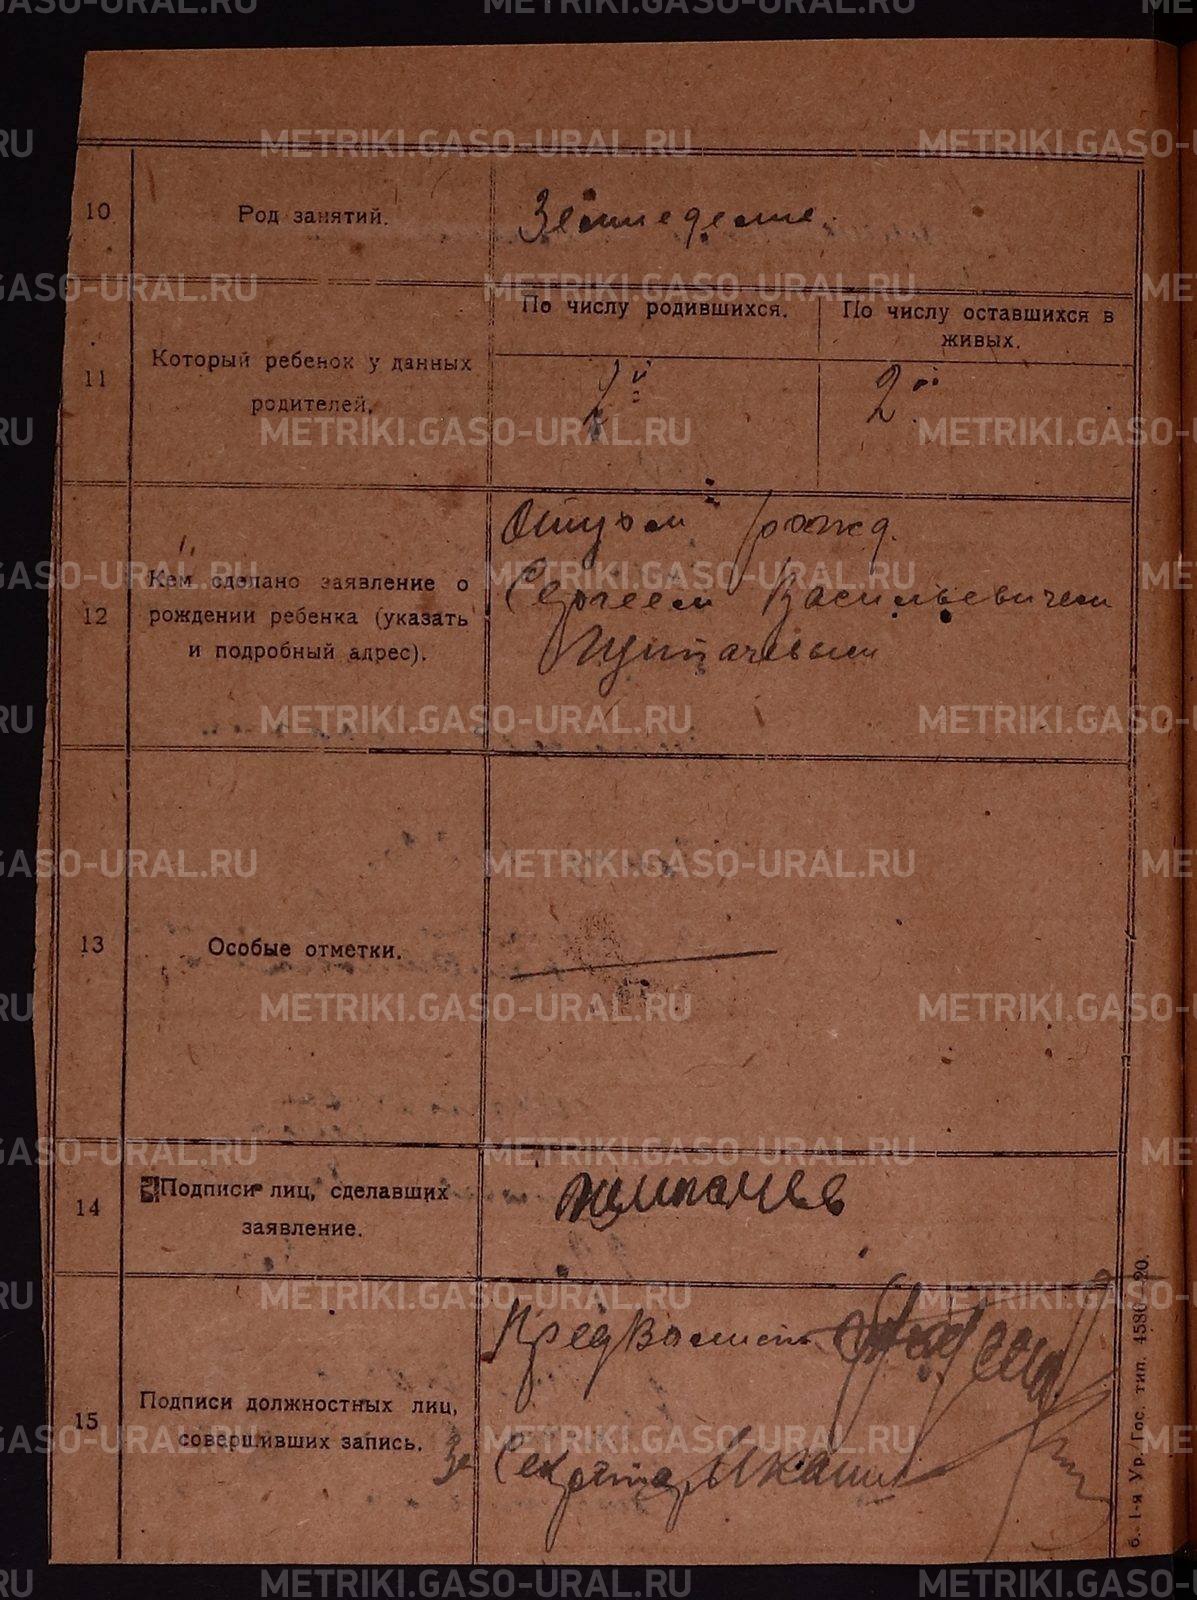 10
Род занятий.
Земледелие.
11
Который ребенок у данных
родителей.
По числу родившихся.
По числу оставшихся в
живых.
2й
2ой
12
Кем сделано заявление о
рождении ребенка (указать
и подробный адрес).
Отцом рожд.
Сергеем Васильевичем
13
Особые отметки.
14
Подписи лиц, сделавших
заявление.
15
Подписи должностных лиц,
совершивших запись.
Пред
За Секретар
6. 1-я Ур. Гос. тип. 4586—20.
METRIKI.GASO-URAL.RU